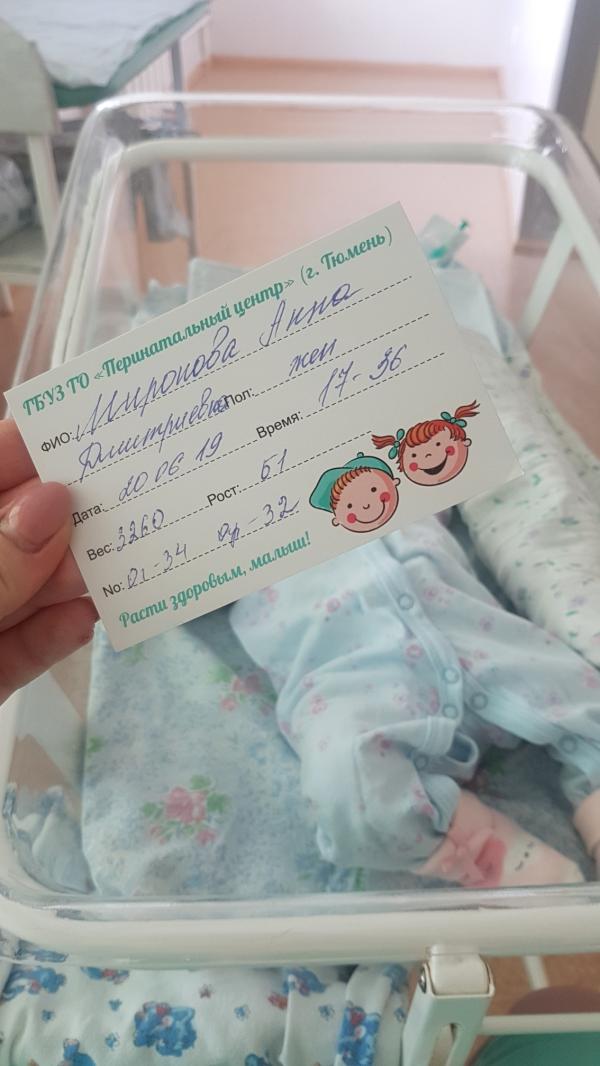 ГБУЗ ТО «Перинатальный центр» (г. Тюмень)
ФИО: Миронова Анна
Дмитриевна Пол: жен
Дата: 20 06 19 Время: 17-36
Вес: 3260 Рост: 51
No: Ог-34 Ор-32
Расти здоровым, малыш!